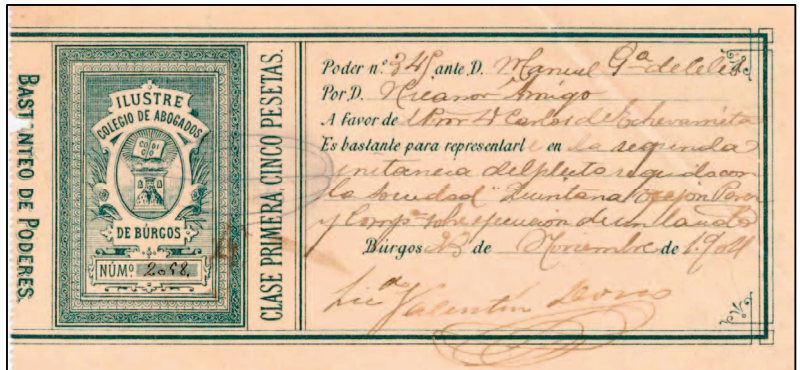 BASTANTEO DE PODERES.
ILUSTRE
COLEGIO DE ABOGADOS
CODIGO
DE BÚRGOS
NÚMº 2.098,
CLASE PRIMERA, CINCO PESETAS.
Poder n.º 345 ante D. Manuel Gª de Celis
Por D. Nicanor Amigo
A favor de D. Carlos de Echevarrieta
Es bastante para representarl e en la segunda
instancia del pleito seguido con
la sociedad "Quintana
y Compª sobre ejecucion de un laudo
Búrgos 23 de Noviembre de 1.904
Licdo Valentin